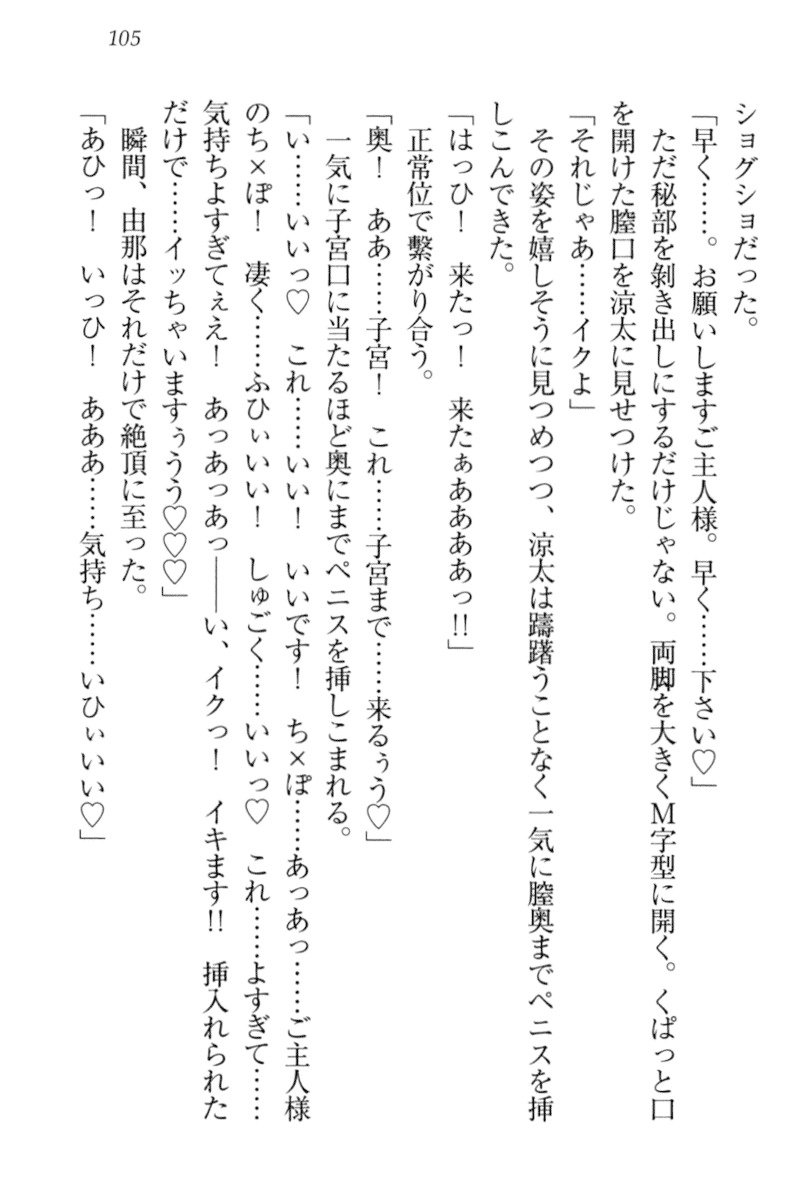 105
ショグショだった。
「早く……。お願いしますご主人様。早く……下さい♡」
ただ秘部を剥き出しにするだけじゃない。両脚を大きくM字型に開く。くぱっと口
を開けた膣口を涼太に見せつけた。
「それじゃあ……イクよ」
その姿を嬉しそうに見つめつつ、涼太は躊躇うことなく一気に膣奥までペニスを挿
しこんできた。
「はっひ！　来たっ！　来たぁああああっ!!」
正常位で繋がり合う。
「奥！　ああ……子宮！　これ……子宮まで……来るぅう♡」
一気に子宮口に当たるほど奥にまでペニスを挿しこまれる。
「い……いいっ♡　これ……いい！　いいです！　ち×ぽ……あっあっ……ご主人様
のち×ぽ！　凄く……ふひぃいい！　しゅごく……いいっ♡　これ……よすぎて……
気持ちよすぎてぇえ！　あっあっあっ――い、イクっ！　イキます!!　挿入れられた
だけで……イッちゃいますぅうう♡♡♡」
瞬間、由那はそれだけで絶頂に至った。
「あひっ！　いっひ！　あああ……気持ち……いひぃいい♡」